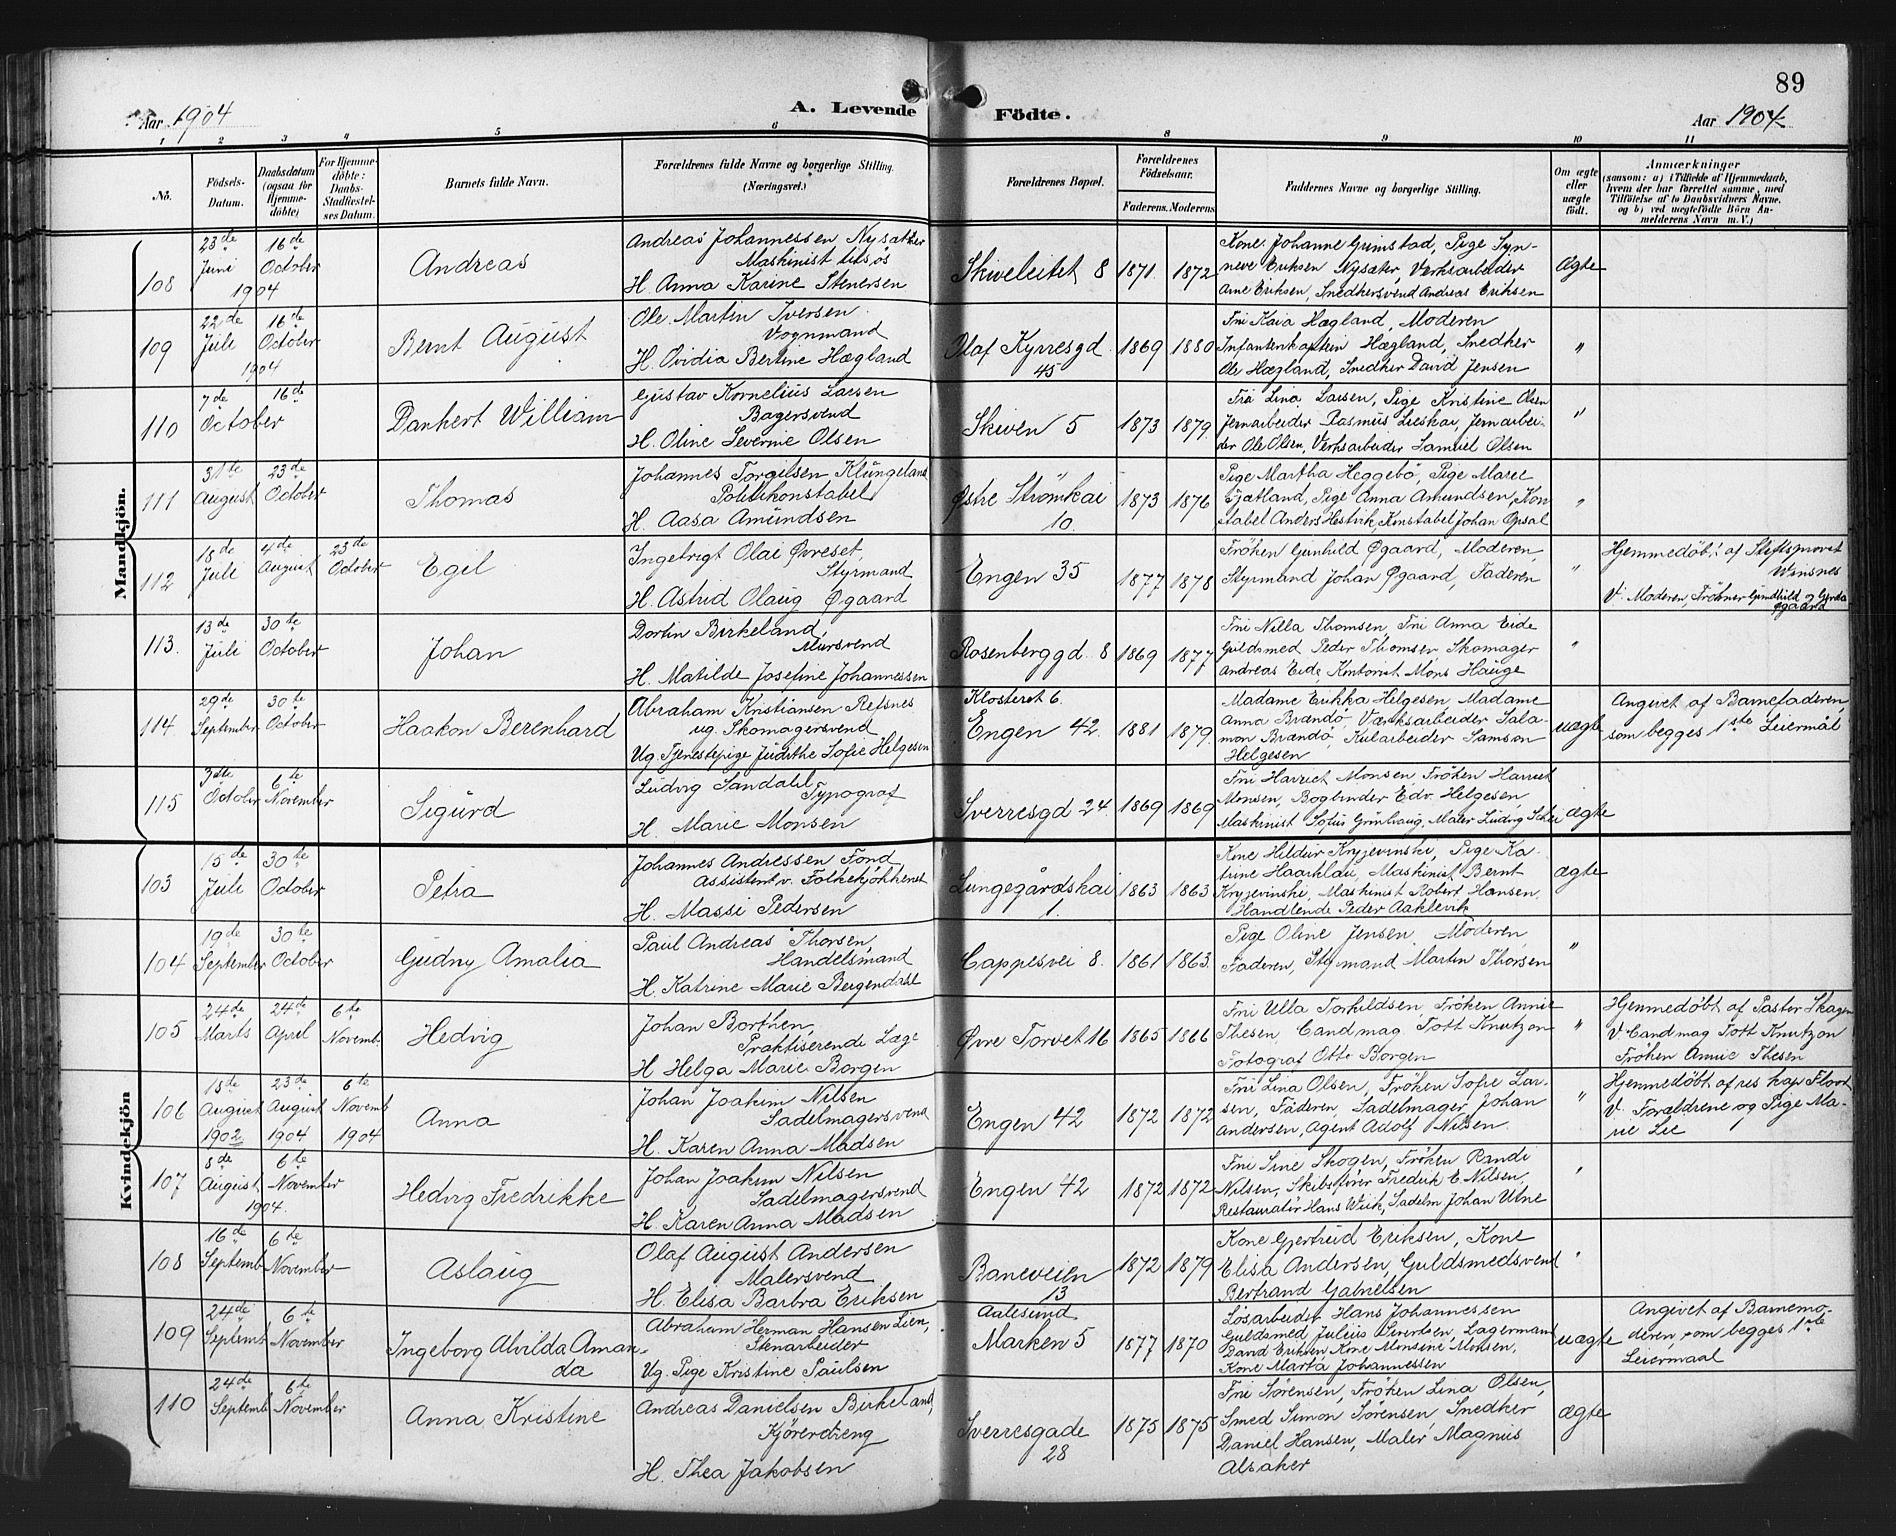 89
Aar 1904
A. Levende
Födte.
Aar 1904
1 2 3 4 5 6 8 9 10 11
No.
Födsels-
Datum.
Daabsdatum
(ogsaa for
Hjemme-
döbte)
For Hjemme-
döbte:
Daabs-
Stadfæstel-
ses Datum.
Barnets fulde Navn.
Forældrenes fulde Navne og borgerlige Stilling.
(Næringsvei.)
Forældrenes Bopæl.
Forældrenes
Födselsaar.
Faderens. Moderens
Faddernes Navne og borgerlige Stilling.
Om ægte
eller
uægte
födt.
Anmærkninger
(saasom: a) i Tilfælde af Hjemmedaab,
hvem der har forrettet samme, med
Tilföielse af to Daabsvidners Navne.
og b) ved uægtefödte Börn An-
melderens Navn m. V.)
Mandkjön.
108
23de Juni 1904
16de October
Andreas
Andreas Johannessen Nysæter
Maskinist tilsös
H. Anna Karine Stenersen
Skiveleitet 8
1871. 1872
Kone Johanne Grimstad, Pige Syn-
neve Eriksen Nysæter, Verksarbeider
Arne Eriksen, Snedkersvend Andreas Eriksen
Ægte
109
22de Juli 1904
16de October
Bernt August
Ole Martin Iversen
Vognmand
H. Ovidia Bertine Hægland
Olaf Kyrresgd 45
1869 1880
Fru Kaia Hægland, Moderen
Infanterikaptein Hægland, Snedker
Ole Hægland, Snedker David Jensen
"
110
7de October
16de
Dankert William
Gustav Kornelius Larsen
Bagersvend
H. Oline Severine Olsen
Skiven 5
1873 1879
Fru Lina Larsen, Pige Kristine Olsen
Jernarbeider Rasmus Lieskar, Jernarbei-
der Ole Olsen, Verksarbeider Samuel Olsen
"
111
31te August
23de October
Thomas
Johannes Torgilsen Klungeland
Politikonstabel
H. Aasa Amundsen
Østre Strömkai 10
1873 1876
Pige Martha Heggebö, Pige Marie
Pige Anna Amundsen, Kon-
stabel Anders Konstabel Johan Opsal
"
112
18de Juli
4de August
23de October
Egil
Ingebrigt Olai Øvreset,
Styrmand
H. Astrid Olaug Øgaard
Engen 35
1877 1878
Fröken Gunhild Øgaard, Moderen
Styrmand Johan Øgaard, Faderen
"
Hjemmedöbt af Stiftsprovst
Winsnes
V. Moderen, Frökner Gundhild og Gerda
Øgaard
113.
13de Juli
30te October
Johan
Dortin Birkeland,
Mursvend
H. Matilde Josefine Johannessen
Rosenberggd. 8
1869 1877
Fru Nilla Thomsen, Fru Anna Eide
Guldsmed Peder Thomsen Skomager
Andreas Eide, Kontorist Mons Hauge
"
114
29de September
30te October
Haakon Berenhard
Abraham Kristiansen Refsnes
ug. Skomagersvend
Ug. Tjenestepige Judithe Sofie Helgesen
Klosteret 6
Engen 42.
1881 1879
Madame Erikka Helgesen, Madame
Anna Brandö, Værksarbeider Sala-
mon Brandö, Kularbeider Samson
Helgesen
uægte
Angivet af Barnefaderen,
som begges 1ste Leiermål
115
3die October
6te November
Sigurd
Ludvig Sandahl
Typograf
H. Marie Monsen
Sverresgd 24
1869 1869
Fru Harriet Monsen Fröken Harriet
Monsen, Bogbinder Edv. Helgesen,
Maskinist Sofus Grünhaug, Maler Ludvig
ægte
Kvindekjön
103
15de Juli
30te October
Petra
Johannes Andressen Fond,
Assistent v. Folkekjökkenet
H. Massi Pedersen
Lungegårdskai 1.
1863 1863
Kone Hildur Kryjevinski, Pige Ka-
trine Haarklau, Maskinist Bernt
Kryjevinski, Maskinist Robert Hansen,
Handlende Peder Aaklevik
ægte
104
19de September
30te October
Gudny Amalia
Paul Andreas Thorsen,
Handelsmand
H. Katrine Marie Bergendahl
Cappesvei 8.
1861 1863
Pige Oline Jensen, Moderen
Faderen, Stymand Martin Thorsen
"
105
24de Marts
24de April
6te Novemb.
Hedvig
Johan Borthen,
Praktiserende Læge
H Helga Marie Borgen
Øvre Torvet 16
1865 1866
Fru Ulla Torkildsen, Fröken Annie
Thesen, Cand mag Tott Knutzon
Fotograf Otto Borgen
"
Hjemmedöbt af Pastor Skagen
V. Cand mag Tott Knutzon
Fröken Annie Thesen
106
18de August 1902
23de August 1904
6te Novemb 1904
Anna
Johan Joakim Nilsen
Sadelmagersvend
H. Karen Anna Madsen
Engen 42
1872 1872
Fru Lina Olsen, Fröken Sofie Lar-
sen, Faderen, Sadelmager Johan
Andersen, Agent Adolf Nilsen
"
Hjemmedöbt af res kap Floor
V. Forældrene og Pige Ma-
rie Lie
107
8de August 1904.
6te November
Hedvig Fredrikke
Johan Joakim Nilsen
Sadelmagersvend
H. Karen Anna Madsen
Engen 42
1872 1872
Fru Sine Skogen, Fröken Randi
Nilsen, Skibsförer Fredrik E. Nilsen,
Restauratör Hans Wiik, Sadelm Johan Utne
"
108
16de Septemb
6te November
Aslaug
Olaf August Andersen
Malersvend
H. Elisa Barbra Eriksen
Baneveien 13
1872 1879
Kone Gjertrud Eriksen, Kone
Elisa Andersen, Guldsmedsvend
Bertrand Gabrielsen
"
109
24de Septemb
6te November
Ingeborg Alvilda Aman-
da
Abraham Herman Hansen Lien,
Stenarbeider
Ug. Pige Kristine Paulsen
Aalesund
Marken 5
1877 1870
Lösarbeider Hans Johannessen
Guldsmed Julius Sivertsen, Lagermand
David Eriksen, Kone Monsine Monsen,
Kone Marta Johannessen
uægte
Angivet af Barnemo-
deren, som begges 1ste
Leiermaal
110
24de Septemb
6te November
Anna Kristine
Andreas Danielsen Birkeland,
Kjörerdreng
H. Thea Jakobsen
Sverresgade 28
1875 1875
Fru Sörensen, Fröken Lina Olsen,
Smed Simon Sörensen, Snedker
Daniel Hansen, Maler Magnus
Alsaker
ægte